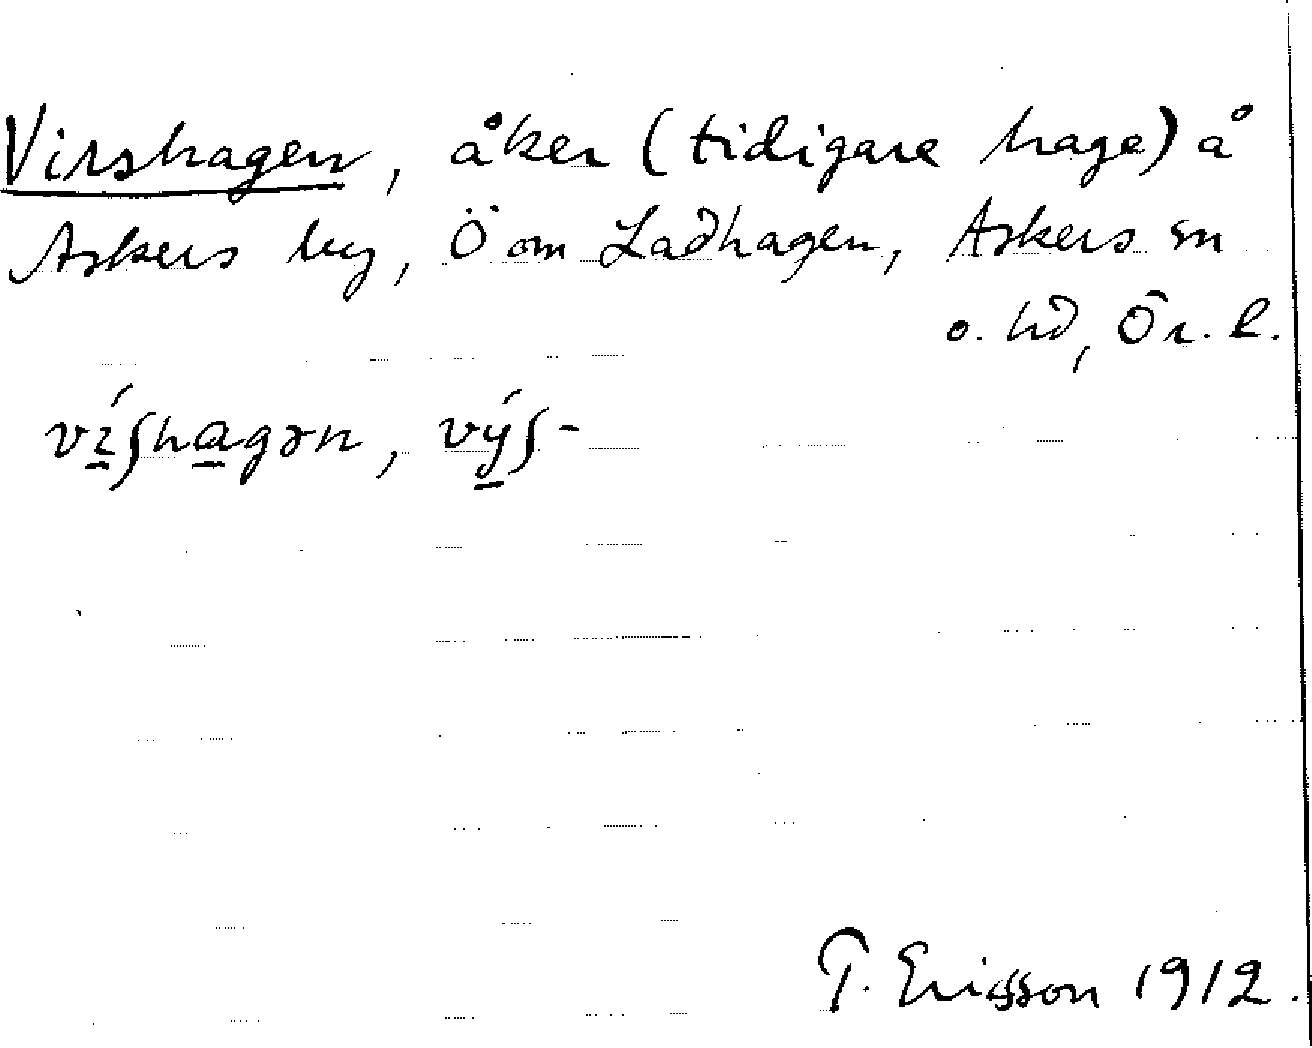 Virshagen, åker (tidigare hage) å
Askers by, Ö om Ladhagen, Askers sn
o. hd, Ör. l.
ví̱ʃha̱gən, vý̱ʃ-
T. Ericsson 1912.